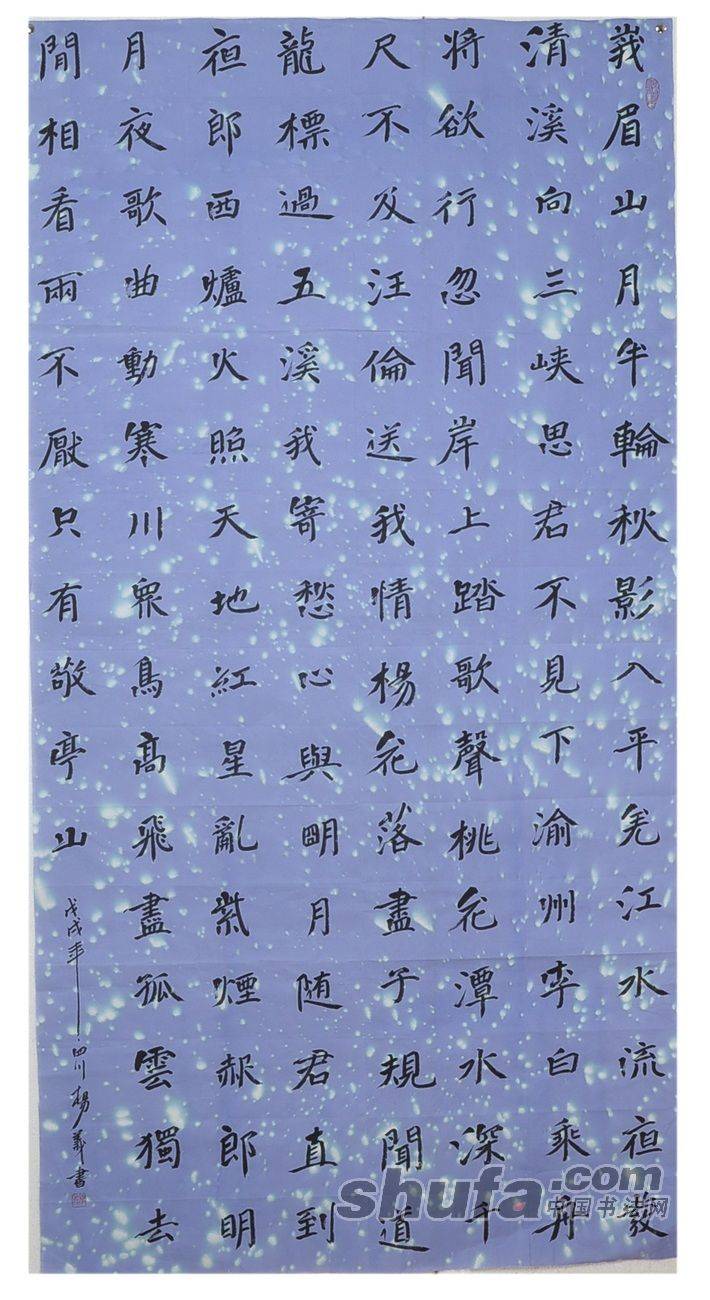 峩眉山月半輪秋影入平羌江水流夜發
清溪向三峡思君不見下渝州李白乘舟
将欲行忽聞岸上踏歌聲桃花潭水深千
尺不及汪倫送我情楊花落盡子規聞道
龍標過五溪我寄愁心與明月随君直到
夜郎西爐火照天地紅星亂紫煙赧郎明
月夜歌曲動寒川眾鳥高飛盡孤雲獨去
閒相看兩不厭只有敬亭山
戊戌年四川楊義書
shufa.com
中国书法网